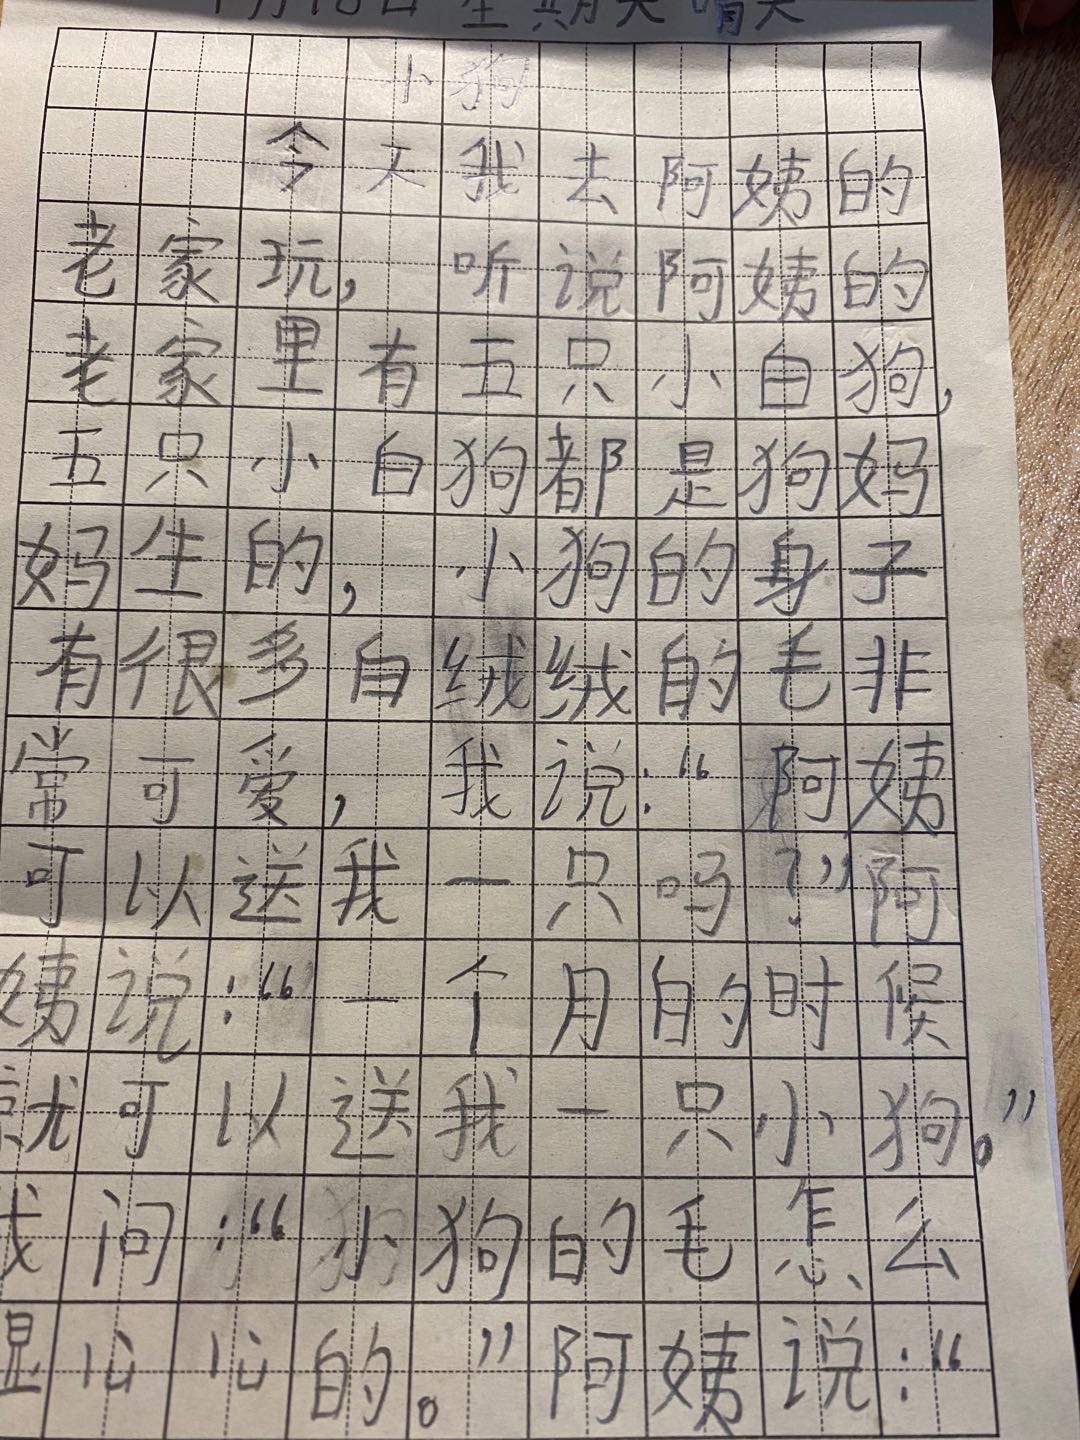 月18日 星期天 晴天
小狗
今天我去阿姨的
老家玩，听说阿姨的
老家里有五只小白狗，
五只小白狗都是狗妈
妈生的，小狗的身子
有很多白绒绒的毛非
常可爱，我说：“阿姨
可以送我一只吗？”阿
姨说：“一个月的时候
就可以送我一只小狗。”
我问：“小狗的毛怎么
是心心的。”阿姨说：“